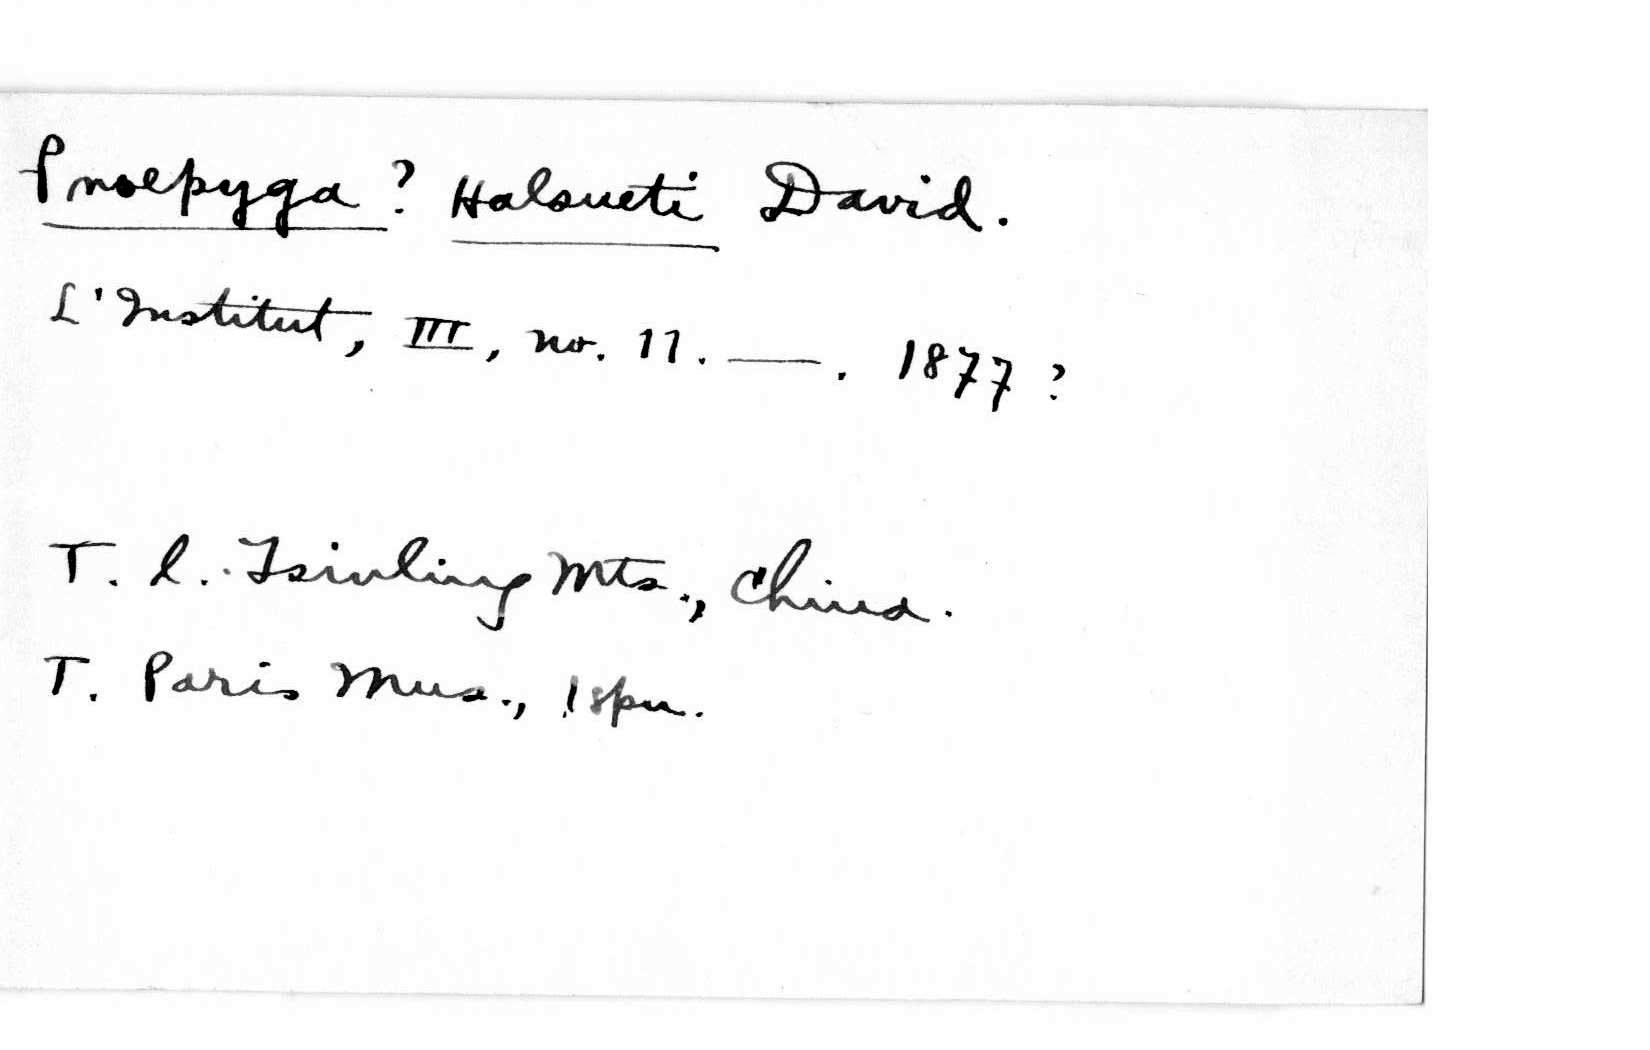 Pnoepyga? Halsueti David.
L'Institut, III, no. 11. —. 1877?
T. l. Tsinling Mts., China.
T. Paris Mus., 1 spn.